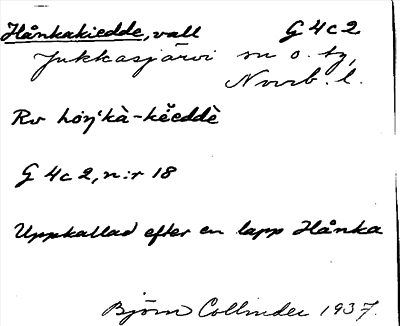 Hånkakiedde, vall G 4 c 2
Jukkasjärvi sn o. tg,
Norrb. l.
Rv hòŋ'kà-kĕeddè
G 4 c 2, n:r 18
Uppkallad efter en lapp Hånka
Björn Collinder 1937.